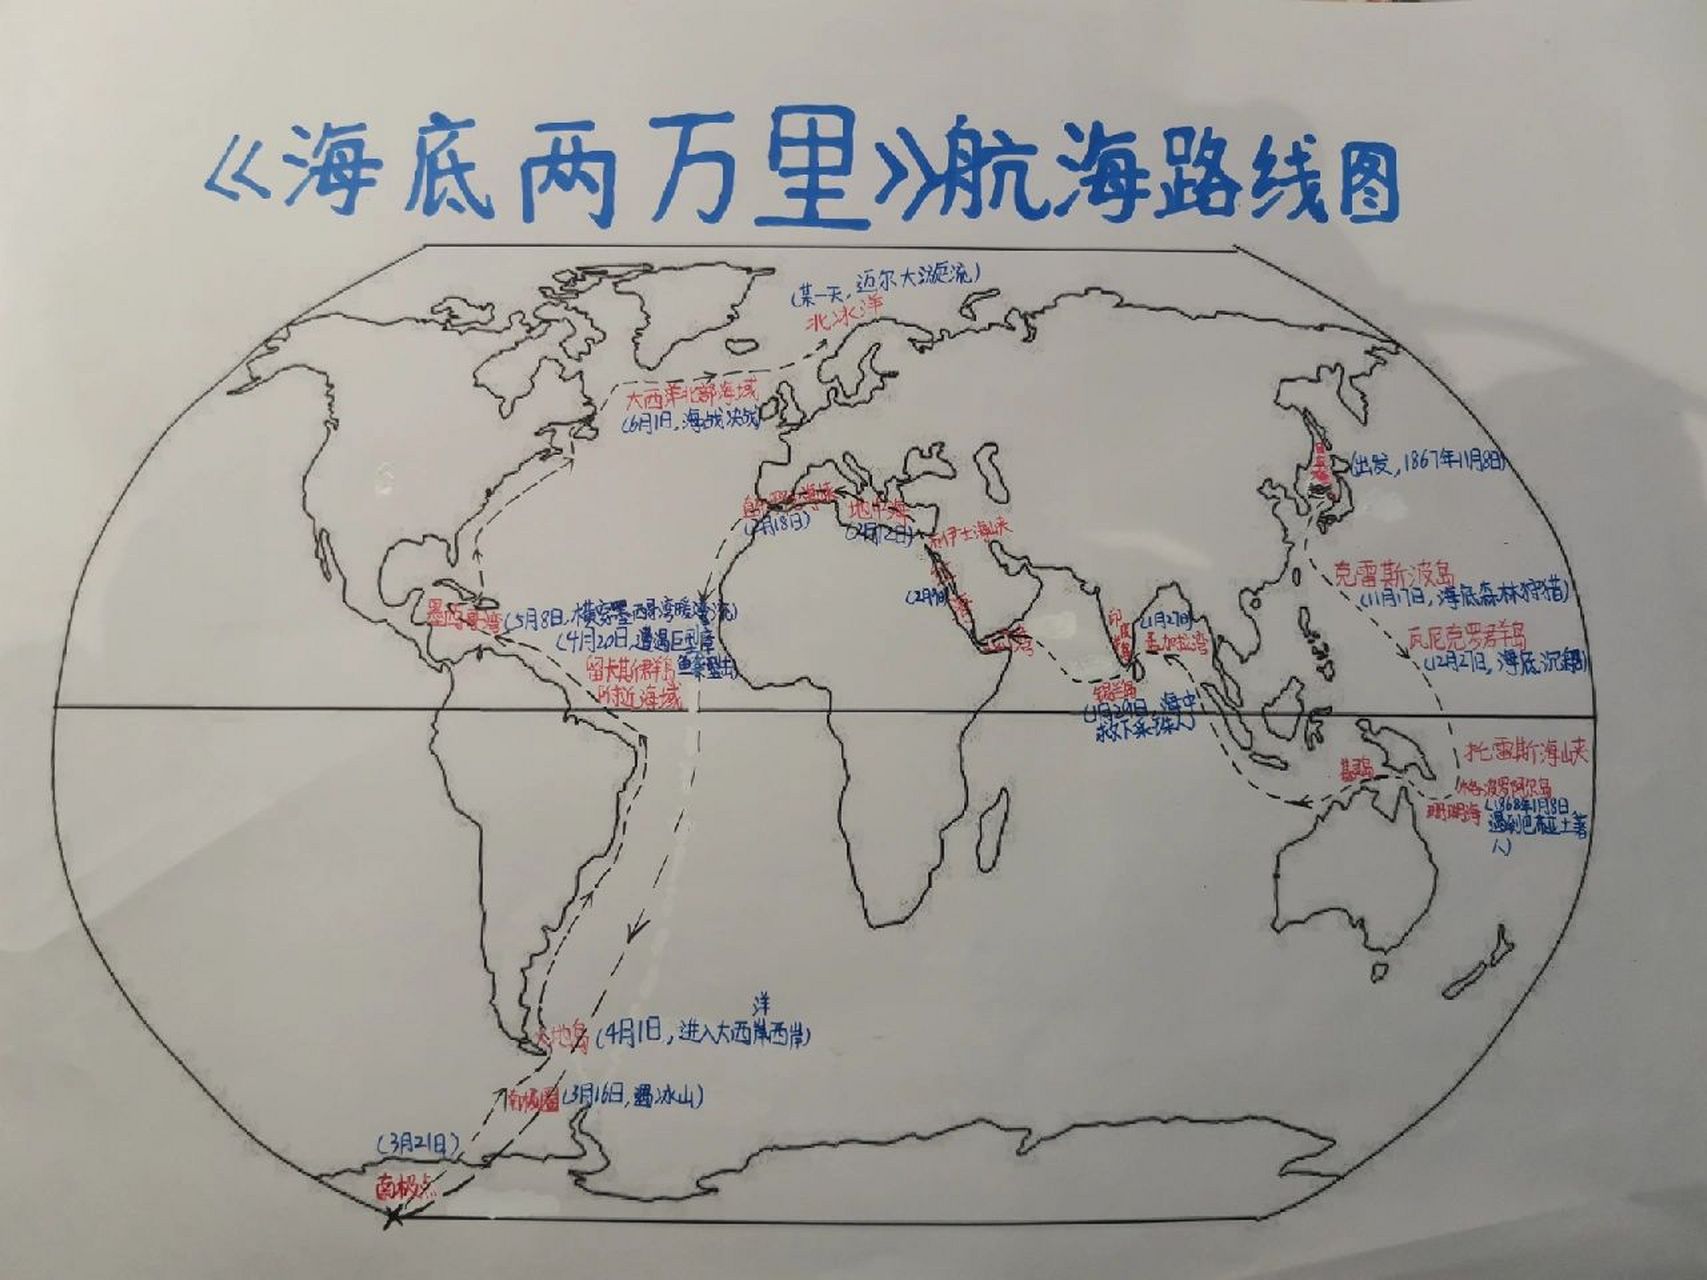 《海底两万里》航海路线图
(某一天,迈尔大漩流)
北冰洋
大西洋北部海域
(6月1日,海战决战)
(出发,1867年11月8日)
地中海
(2月18日)
(2月12日)
苏伊士海峡
(2月9日)
克雷斯波岛
(11月17日,海底森林狩猎)
瓦尼克罗群岛
(12月27日,海底沉船)
墨西哥湾(5月8日,横穿墨西哥湾暖湾流)
(4月20日,遭遇巨型章
鱼
留卡斯群岛
附近海域
(1月27日)
孟加拉湾
锡兰岛
(1月29日,海中
救下采珠人)
托雷斯海峡
格波罗阿尔岛
珊瑚海
(1868年1月8日,
遇到巴布亚土著
人)
洋
火地岛(4月1日,进入大西岸西岸)
南极圈(3月16日,遇冰山)
(3月21日)
南极点